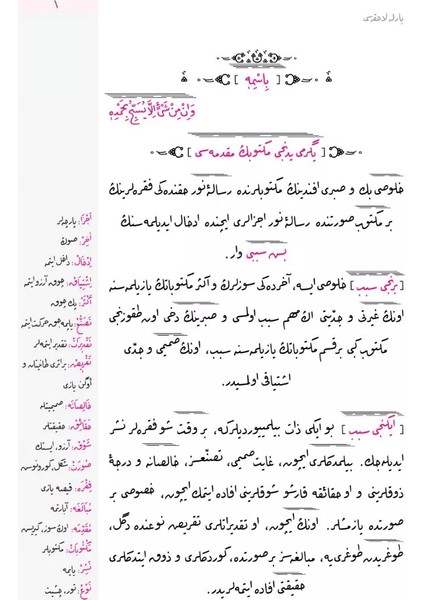 ١
بارلا لاحقه‌سى
[ بِاسْمِهِ ]
وَاِنْ مِنْ شَىْءٍ اِلَّا يُسَبِّحُ بِحَمْدِهِ
[ يگرمى يدنجى مكتوبڭ مقدمه‌سى ]
خلوصى بك و صبرى افندينڭ مكتوبلرنده رسالۀ نور حقنده‌كى فقره‌لرينڭ
بر مكتوب صورتنده رسالۀ نور اجزالرى ايچنده ادخال ايديلمه‌سنڭ
بش سببى وار.
[ برنجى سبب ] خلوصى ايسه، آخرده‌كى سوزلرڭ و اكثر مكتوباتڭ يازيلمه‌سنه
اونڭ غيرتى و جديتى اڭ مهم سبب اولمسى و صبرينڭ دخى اون طقوزنجى
مكتوب كبى بر قسم مكتوباتڭ يازيلمه‌سنه سبب، اونڭ صميمى و جدى
اشتياقى اولمسيدر.
[ ايكنجى سبب ] بو ايكى ذات بيلميورديلر كه، بر وقت شو فقره‌لر نشر
ايديله‌جك. بيلمه‌دكلرى ايچون، غايت صميمى، تصنعسز، خالصانه و درجۀ
ذوقلرينى و او حقائقه قارشو شوقلرينى افاده ايتمك ايچون، خصوصى بر
صورتده يازمشلر. اونڭ ايچون، او تقديراتلرى تقريضه نوعنده دگل،
طوغريدن طوغرى‌يه، مبالغه‌سز بر صورتده، كوردكلرى و ذوق ايتدكلرى
حقيقتى افاده ايتمه‌لريدر.
اَجْزَا: پارچه‌لر
آخِرْ: صوڭ
اِدْخَالْ: داخل ايتمه
اِشْتِيَاقْ: چوق آرزو ايتمه
اَكْثَرْ: پك چوق
تَقْدِيرَاتْ: تقدير ايتمه‌لر
خَالِصَانَه: صميميتله
حَقَائِقْ: حقيقتلر
شَوْقْ: آرزو، ايستك
فِقْرَه: قيصه يازى
مُبَالَغَه: آبارتمه
مُقَدِّمَه: اوڭ سوز، كيريش
مَكْتُوبَاتْ: مكتوبلر
نَشِرْ: يايمه
نَوْعْ: تور، چشيت